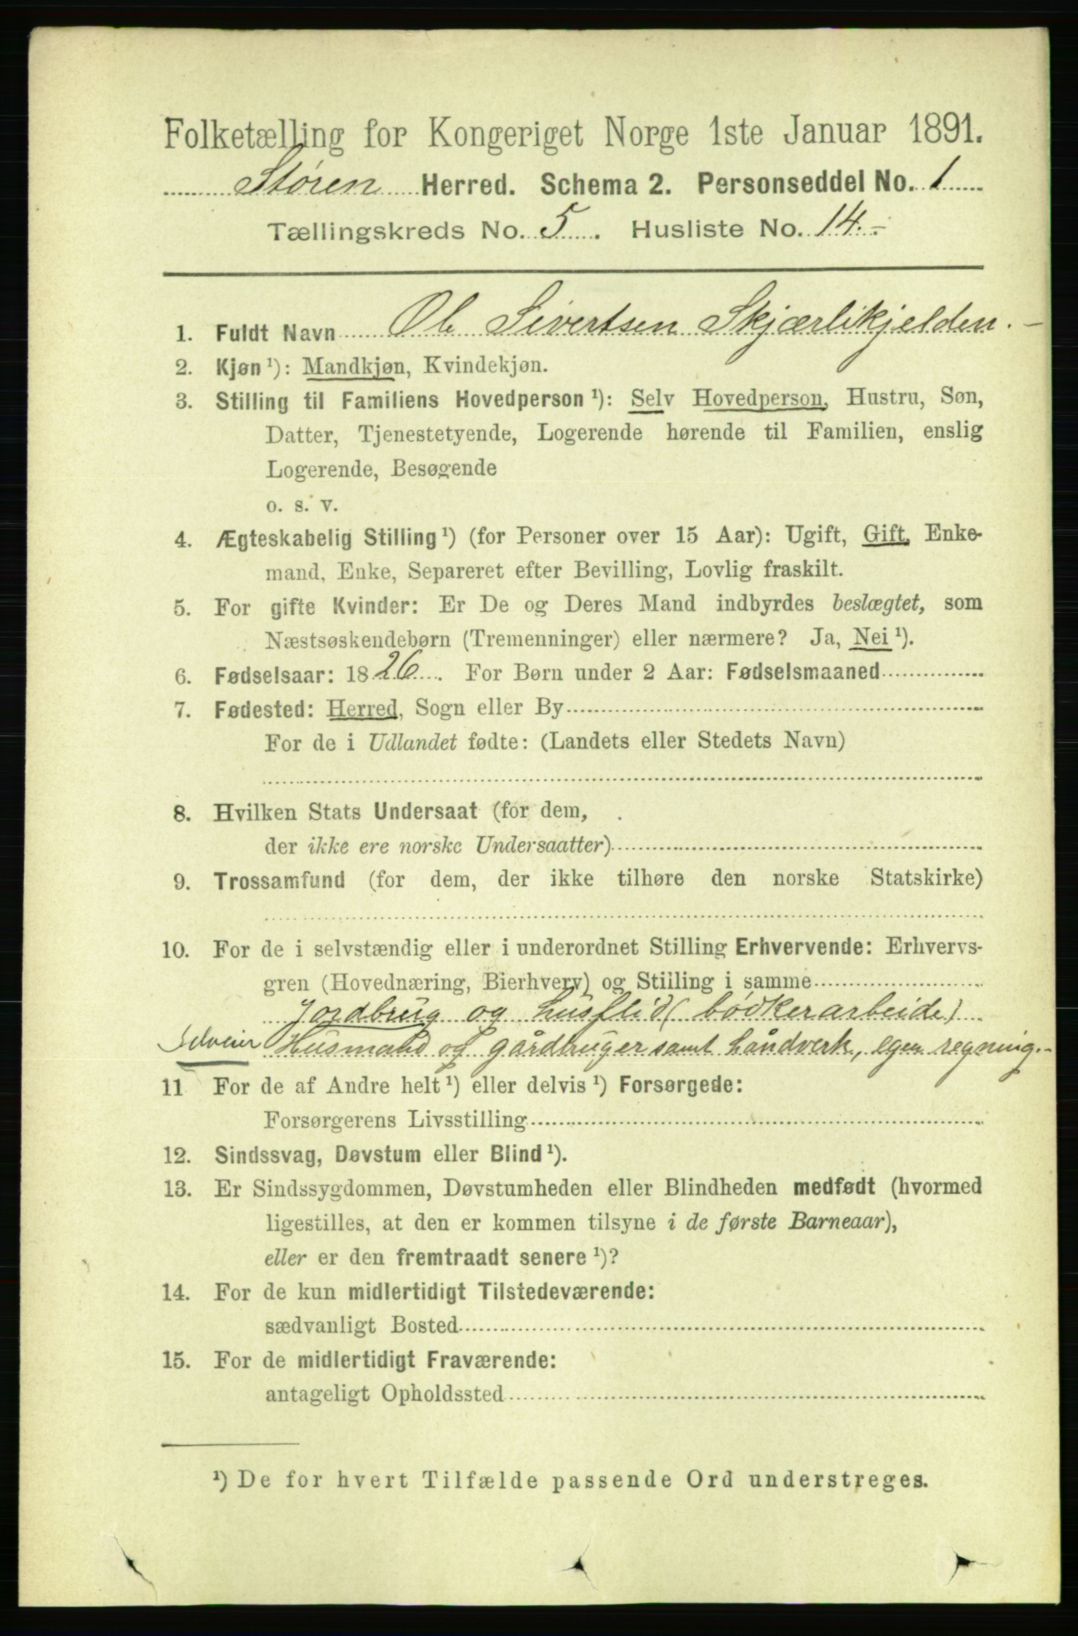 Folketælling for Kongeriget Norge 1ste Januar 1891.
Støren Herred. Schema 2. Personseddel No. 1
Tællingskreds No. 5. Husliste No. 14.-
1. Fuldt Navn Ole Sivertsen Skjærlikjelden. -
2. Kjøn ¹): Mandkjøn, Kvindekjøn.
3. Stilling til Familiens Hovedperson ¹): Selv Hovedperson, Hustru, Søn,
Datter, Tjenestetyende, Logerende hørende til Familien, enslig
Logerende, Besøgende
o. s. v.
4. Ægteskabelig Stilling ¹) (for Personer over 15 Aar): Ugift, Gift, Enke-
mand, Enke, Separeret efter Bevilling, Lovlig fraskilt.
5. For gifte Kvinder: Er De og Deres Mand indbyrdes beslægtet, som
Næstsøskendebørn (Tremenninger) eller nærmere? Ja, Nei ¹).
6. Fødselsaar: 1826. For Børn under 2 Aar: Fødselsmaaned
7. Fødested: Herred, Sogn eller By
For de i Udlandet fødte: (Landets eller Stedets Navn)
8. Hvilken Stats Undersaat (for dem,
der ikke ere norske Undersaatter)
9. Trossamfund (for dem, der ikke tilhøre den norske Statskirke)
10. For de i selvstændig eller i underordnet Stilling Erhvervende: Erhvervs-
gren (Hovednæring, Bierhverv) og Stilling i samme
Jordbrug og husflid (bødkerarbeide)
Selveier Husmand og gårdbruger samt håndverk, egen regning.-
11 For de af Andre helt ¹) eller delvis ¹) Forsørgede:
Forsørgerens Livsstilling
12. Sindssvag, Døvstum eller Blind ¹).
13. Er Sindssygdommen, Døvstumheden eller Blindheden medfødt (hvormed
ligestilles, at den er kommen tilsyne i de første Barneaar),
eller er den fremtraadt senere ¹)?
14. For de kun midlertidigt Tilstedeværende:
sædvanligt Bosted
15. For de midlertidigt Fraværende:
antageligt Opholdssted
¹) De for hvert Tilfælde passende Ord understreges.